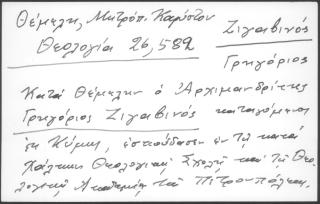 Θέμελη, Μητρόπ. Καρύστου Ζιγαβινός
Θεολογία 26,582 Γρηγόριος
Κατά Θέμελην ὁ Ἀρχιμανδρίτης
Γρηγόριος Ζιγαβινός καταγόμενος
ἐκ Κύμης, ἐσπούδασεν ἐν τῇ κατά
Χάλκην Θεολογικῇ Σχολῇ καί τῇ Θεο-
λογικῇ Ἀκαδημίᾳ τῆς Πετρουπόλεως.